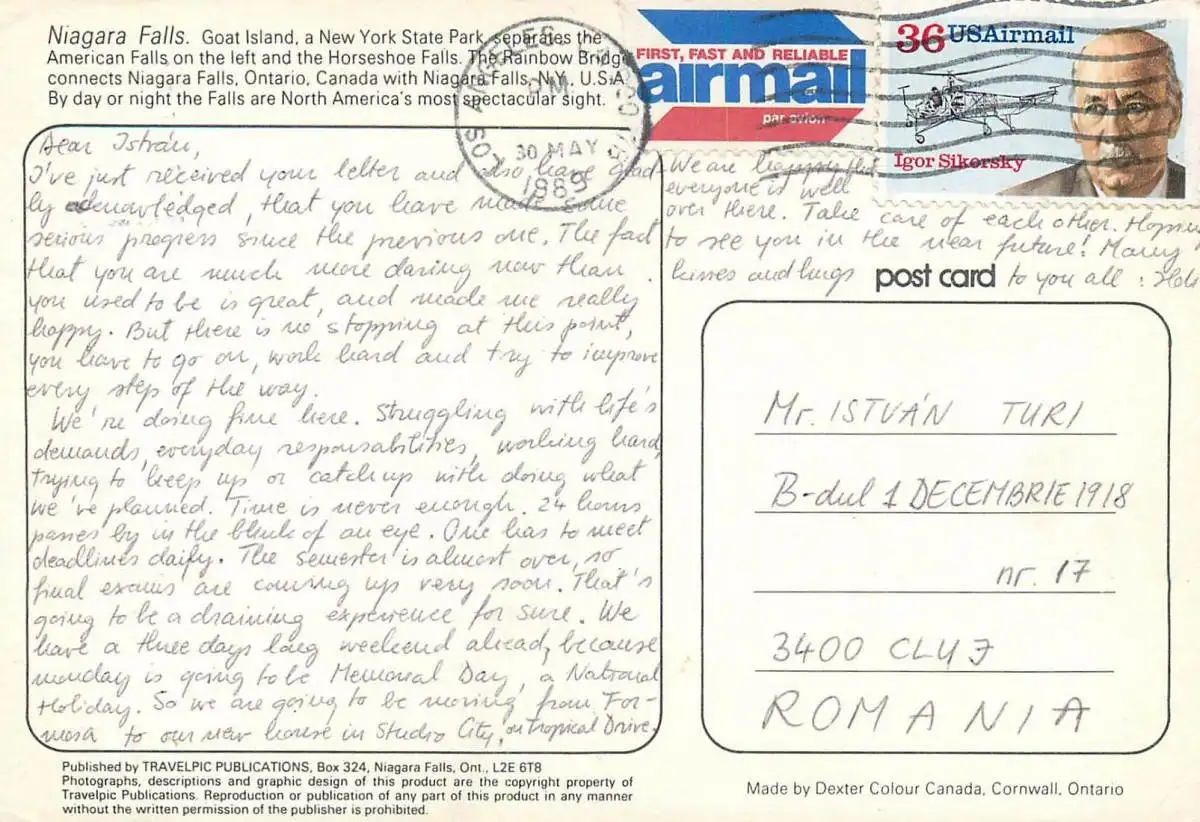 Niagara Falls. Goat Island, a New York State Park, separates the
American Falls on the left and the Horseshoe Falls. The Rainbow Bridge
connects Niagara Falls, Ontario, Canada with Niagara Falls, N.Y., U.S.A.
By day or night the Falls are North America's most spectacular sight.
FIRST, FAST AND RELIABLE
airmail
par avion
36 USAirmail
Igor Sikorsky
LOS ANGELES
PM
30 MAY
1989
Dear István,
I've just received your letter and also have glad-
ly acknowledged, that you have made some
serious progress since the previous one. The fact
that you are much more daring now than
you used to be is great, and made me really
happy. But there is no stopping at this point,
you have to go on, work hard and try to improve
every step of the way.
We're doing fine here. Struggling with life's
demands, everyday responsabilities, working hard,
trying to keep up or catch up with doing what
we've planned. Time is never enough. 24 hours
passes by in the blink of an eye. One has to meet
deadlines daily. The semester is almost over, so
final exams are coming up very soon. That's
going to be a draining experience for sure. We
have a three days long weekend ahead, because
monday is going to be Memorial Day, a National
Holiday. So we are going to be moving from For-
mosa to our new house in Studio City, on Tropical Drive.
We are
everyone is well
over there. Take care of each other. Hoping
to see you in the near future! Many
kisses and hugs to you all:
post card
Mr. ISTVÁN TURI
B-dul 1 DECEMBRIE 1918
nr. 17
3400 CLUJ
ROMANIA
Published by TRAVELPIC PUBLICATIONS, Box 324, Niagara Falls, Ont., L2E 6T8
Photographs, descriptions and graphic design of this product are the copyright property of
Travelpic Publications. Reproduction or publication of any part of this product in any manner
without the written permission of the publisher is prohibited.
Made by Dexter Colour Canada, Cornwall, Ontario